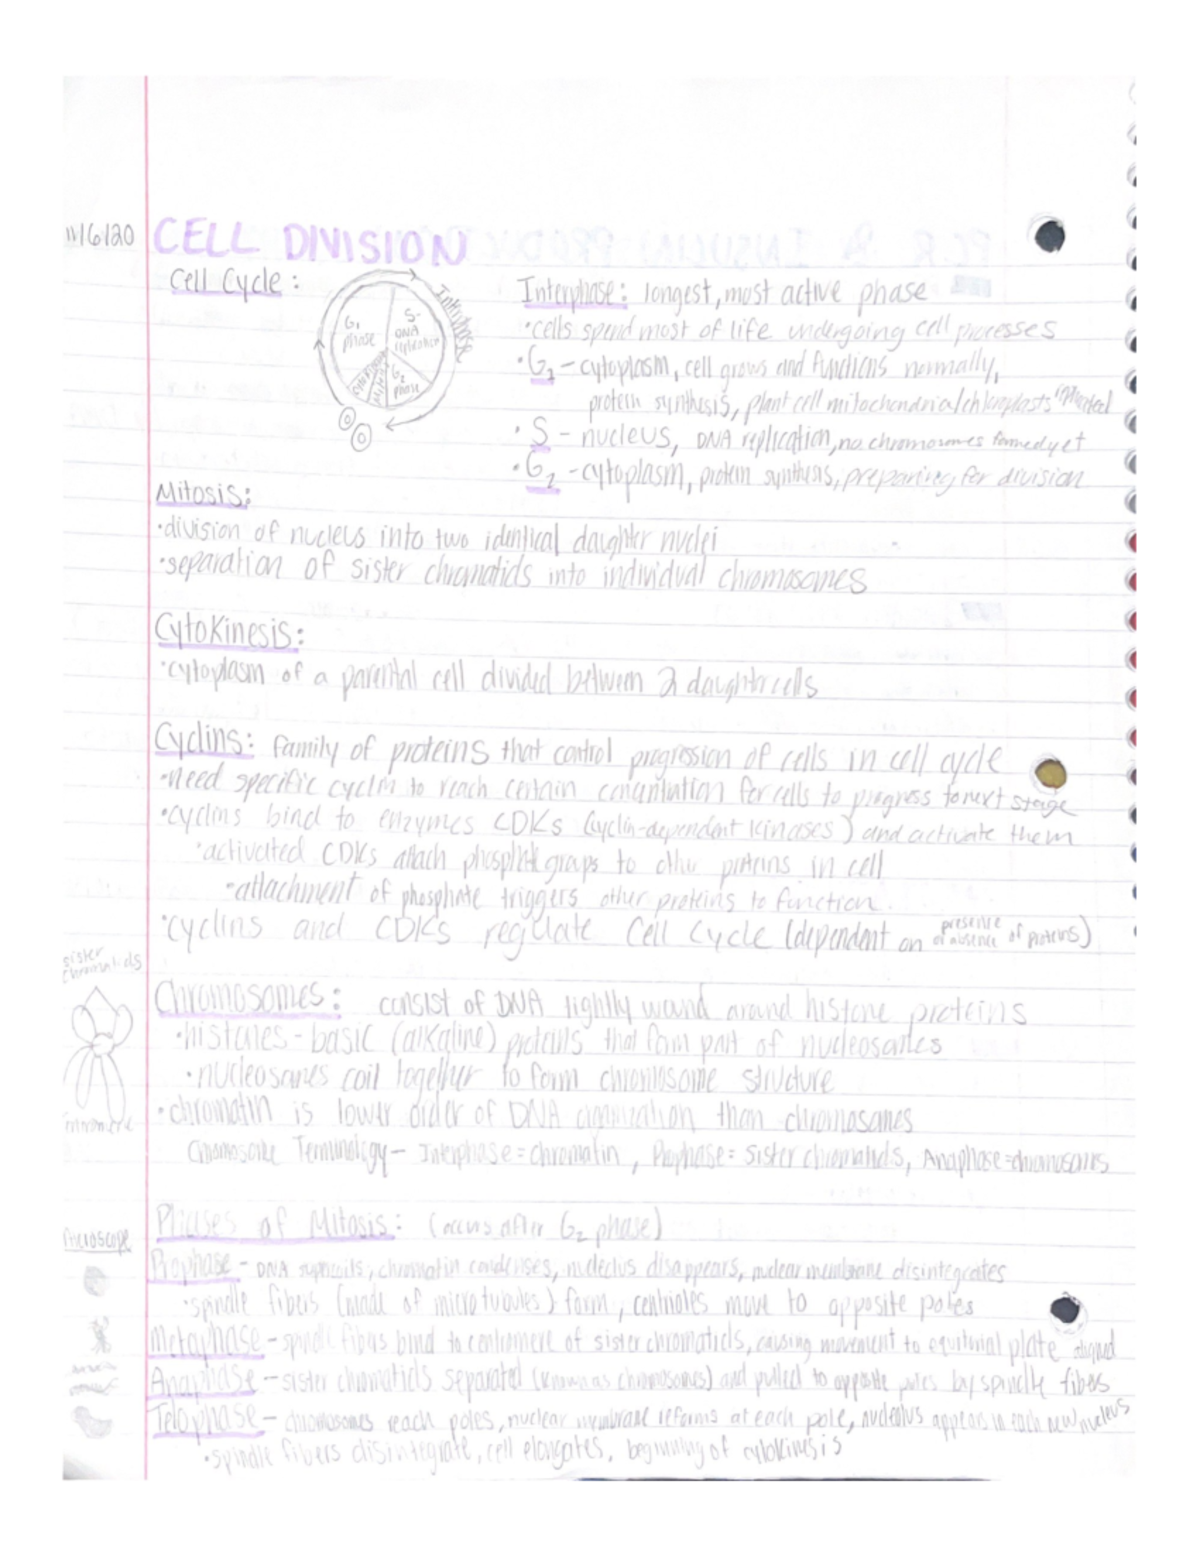 11/6/20 CELL DIVISION
Cell Cycle:
G1 phase
S- DNA replication
G2 phase
Interphase
Interphase: longest, most active phase
•cells spend most of life undergoing cell processes
•G1 - cytoplasm, cell grows and functions normally,
protein synthesis, plant cell mitochondria/chloroplasts
•S - nucleus, DNA replication, no chromosomes formed yet
•G2 - cytoplasm, protein synthesis, preparing for division
Mitosis:
•division of nucleus into two identical daughter nuclei
•separation of sister chromatids into individual chromosomes
Cytokinesis:
•cytoplasm of a parental cell divided between 2 daughter cells
Cyclins: family of proteins that control progression of cells in cell cycle
•need specific cyclin to reach certain concentration for cells to progress to next stage
•cyclins bind to enzymes CDKs (cyclin-dependent kinases) and activate them
•activated CDKs attach phosphate groups to other proteins in cell
-attachment of phosphate triggers other proteins to function.
•cyclins and CDKs regulate Cell Cycle (dependent on presence or absence of proteins)
sister chromatids
Chromosomes: consist of DNA tightly wound around histone proteins
•histones - basic (alkaline) proteins that form part of nucleosomes
•nucleosomes coil together to form chromosome structure
•chromatin is lower order of DNA organization than chromosomes
Chromosome Terminology - Interphase = chromatin, Prophase = sister chromatids, Anaphase = chromosomes
Phases of Mitosis: (occurs after G2 phase)
microscope
Prophase - DNA supercoils, chromatin condenses, nucleolus disappears, nuclear membrane disintegrates
•spindle fibers (made of microtubules) form, centrioles move to opposite poles
Metaphase - spindle fibers bind to centromere of sister chromatids, causing movement to equitorial plate aligned
Anaphase - sister chromatids separated (known as chromosomes) and pulled to opposite poles by spindle fibers
Telophase - chromosomes reach poles, nuclear membrane reforms at each pole, nucleolus appears in each new nucleus
•spindle fibers disintegrate, cell elongates, beginning of cytokinesis